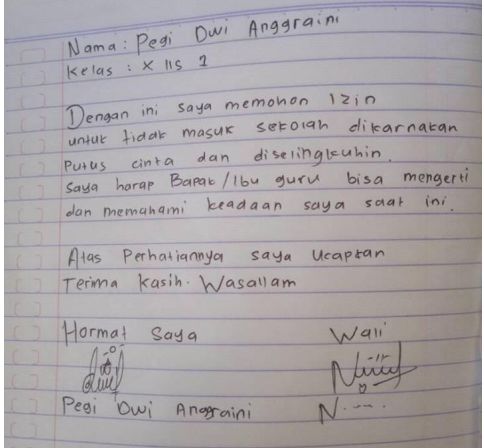 Nama : Pegi Dwi Anggraini
Kelas : X IIS 1
Dengan ini saya memohon Izin
untuk tidak masuk sekolah dikarnakan
Putus cinta dan diselingkuhin.
Saya harap Bapak / Ibu guru bisa mengerti
dan memahami keadaan saya saat ini.
Atas Perhatiannya saya Ucapkan
Terima Kasih. Wasallam
Hormat Saya Wali
Pegi Dwi Anggraini N....